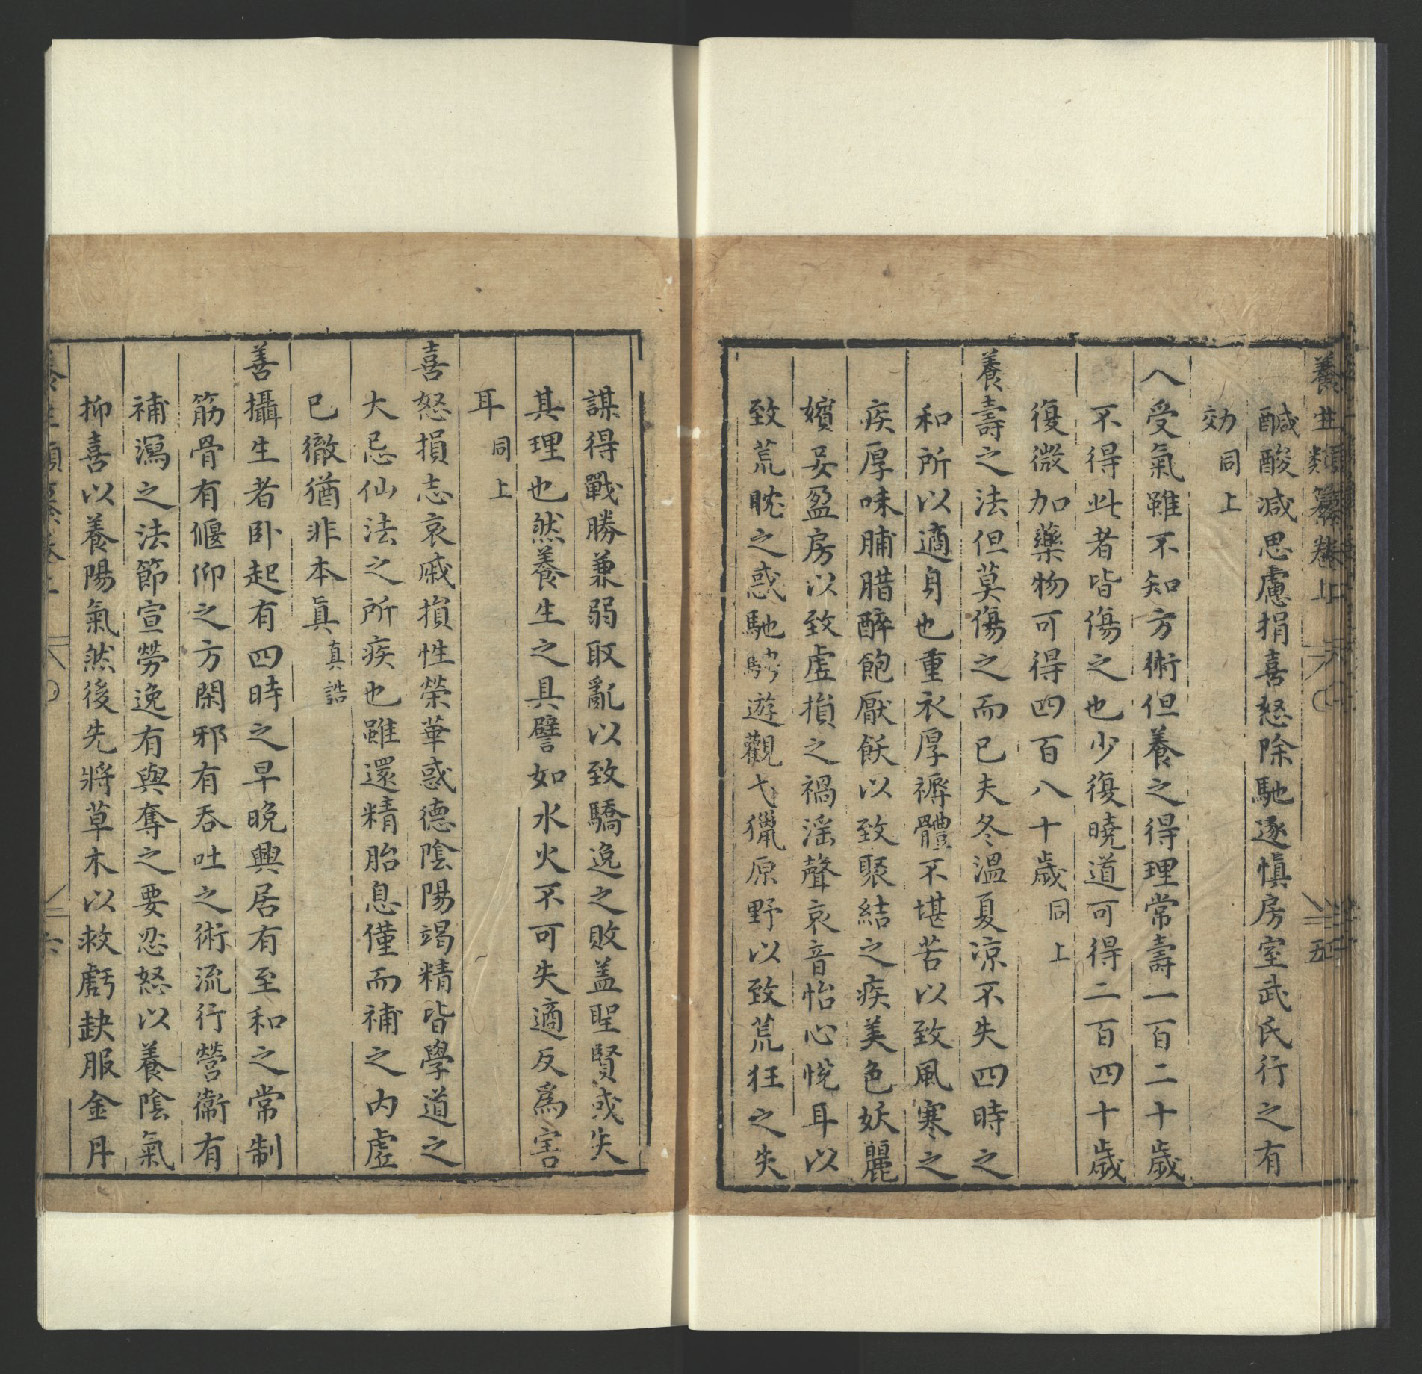 養生類纂卷上
五
醎酸減思慮捐喜怒除馳逐慎房室武氏行之有
効同上
人受氣雖不知方術但養之得理常壽一百二十歲
不得此者皆傷之也少復曉道可得二百四十歲
復微加藥物可得四百八十歲同上
養壽之法但莫傷之而已夫冬溫夏凉不失四時之
和所以適身也重衣厚褥體不堪苦以致風寒之
疾厚味脯腊醉飽厭飫以致聚結之疾美色妖麗
嬪妾盈房以致虛損之禍滛聲哀音怡心悅耳以
致荒眈之惑馳騁遊觀弋獵原野以致荒狂之失
謀得戰勝兼弱取亂以致驕逸之敗盖聖賢或失
其理也然養生之具譬如水火不可失適反爲害
耳同上
喜怒損志哀慼損性榮華惑德陰陽竭精皆學道之
大忌仙法之所疾也雖還精胎息僅而補之內虛
已徹猶非本眞真誥
善攝生者卧起有四時之早晚興居有至和之常制
筋骨有偃仰之方閑邪有吞吐之術流行營衞有
補瀉之法節宣勞逸有與奪之要忍怒以養陰氣
抑喜以養陽氣然後先將草木以救虧缺服金丹
養生類纂卷上
六